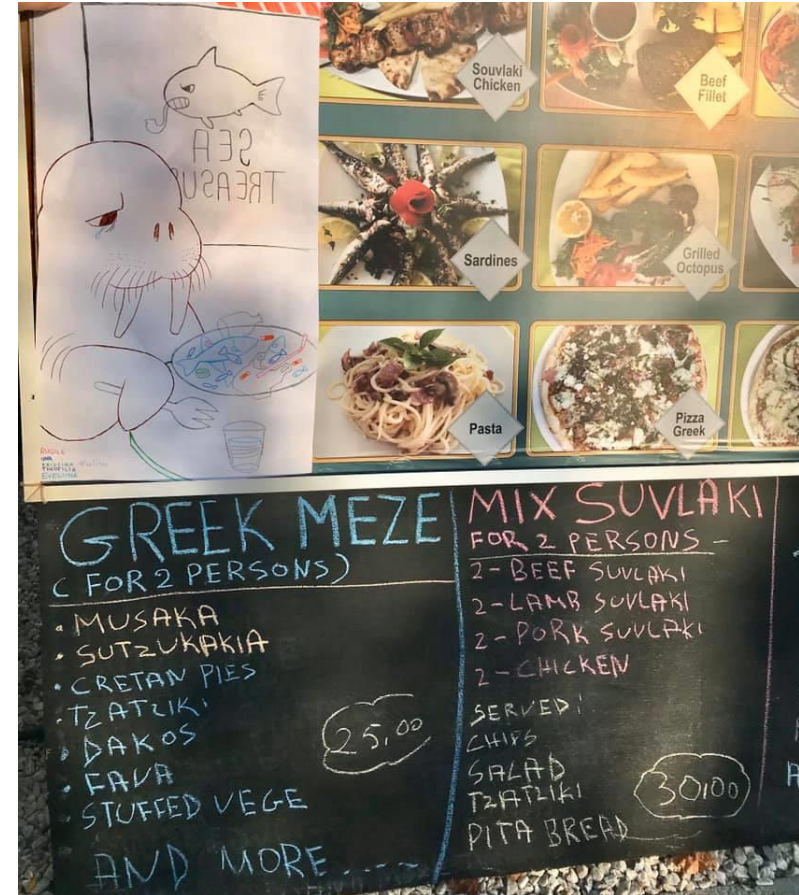 SEA
TREASU
Souvlaki
Chicken
Beef
Fillet
Sardines
Grilled
Octopus
Pasta
Pizza
Greek
EVELINA
GREEK MEZE
( FOR 2 PERSONS )
• MUSAKA
• SUTZUKAKIA
• CRETAN PIES
• TZATZIKI
• DAKOS
• FAVA
• STUFFED VEGE
AND MORE .....
25,00
MIX SUVLAKI
FOR 2 PERSONS -
2 - BEEF SUVLAKI
2 - LAMB SUVLAKI
2 - PORK SUVLAKI
2 - CHICKEN
SERVED:
CHIPS
SALAD
TZATZIKI
PITA BREAD
30,00